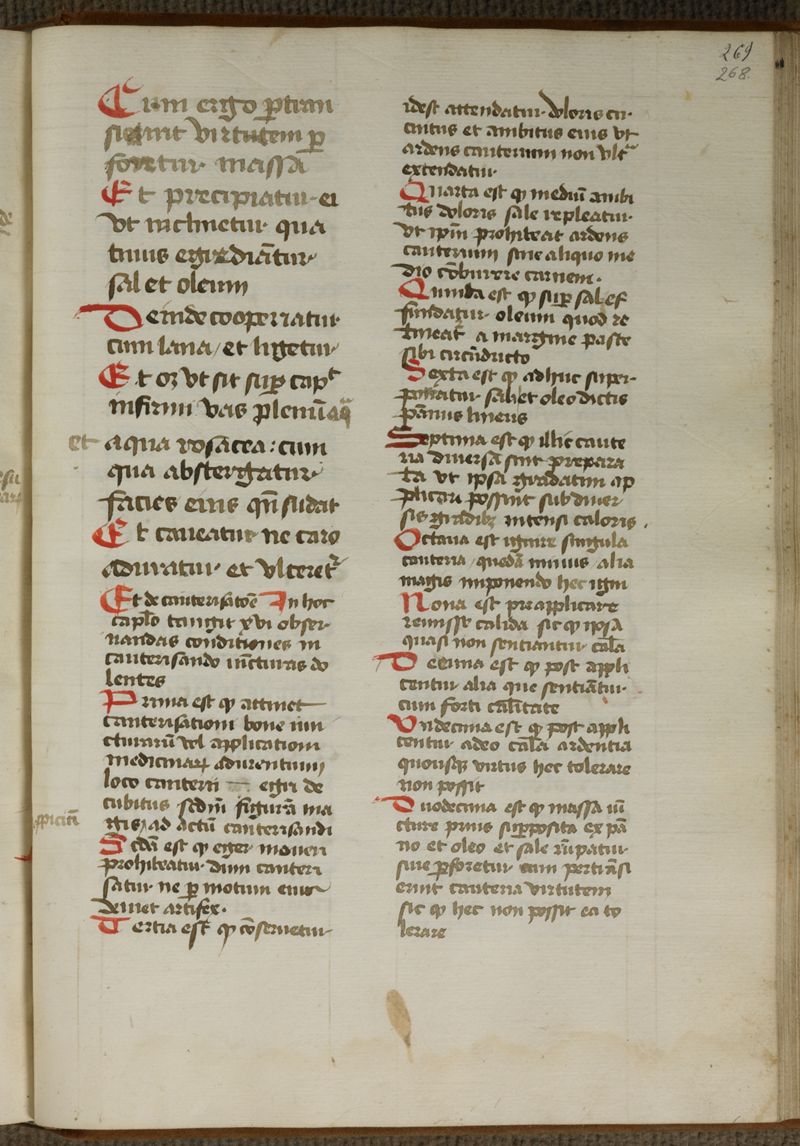 269
268
Cum ergo ꝑtran
sierint virtutem ꝑ
foretur massa
Et precipiatur ei
vt inclinetur qua
tinus egrediātur
sal et oleum
Deinde cooperiatur
cum lana / et ligetur
Et oꝫ vt sit suꝑ capᵗ
infirmi vas plenū aq̄
et aqua rosacea : cum
qua abstergatur
facies eius qn̄ sudat
Et caueatur ne caro
aduratur et vlceretᷣ
Et de cauterisatōe In hoc
caplō tangit xvi obser
uandas conditiones in
cauterisando iūcturas do
lentes
Prima est ꝙ attinet
cauterisationi bone iun
cturarū vel applicationi
medicinaꝝ adurentium
loco cauterii egri de
cubitus scdm̄ figurā ma
gis ad actū cauterisandi
Scdā est ꝙ eger moueri
prohibeatur dum cauteri
satur ne ꝑ motum eius
deuiet artifex .
Tertia est ꝙ cōseruetur
idest attendatur doloris cir
cuitus et ambitus eius vt
ardens cauterium non vltᵃ
extendatur
Quarta est ꝙ mediū ambi
tus doloris sale repleatur
vt ip̄m prohibeat ardens
cauterium sine aliquo me
dio cōburere carnem .
Quinta est ꝙ suꝑ sal eſ
fundatur oleum quod re
tineat a margine paste
sibi circūducto
Sexta est ꝙ adhuc super
ponatur sali et oleo dictis
pānus lineus
Septima est ꝙ illic caute
ria diuersa sint prepara
ta vt ipsa gradatim ap
plicari possint sub diuer
sis gradibꝫ intensi caloris .
Octaua est ignire singula
cauteria / quedā minus alia
magis imponendo hec igni
Nona est preapplicare
remisse calida sic ꝙ ipsa
quasi non sentiantur cal̄a
Decima est ꝙ post appli
centur alia que sentiātur
cum forti calītate
Vndecima est ꝙ post appli
centur adeo cal̄a ardentia
quousqꝫ virtus hec tolerare
non possit
Duodecima est ꝙ massa iū
cture prius supposita ex pā
no et oleo et sale rūpatur
siue ꝑforetur cum pertrāsi
erint cauteria virtutem
sic ꝙ hec non possit ea to
lerare